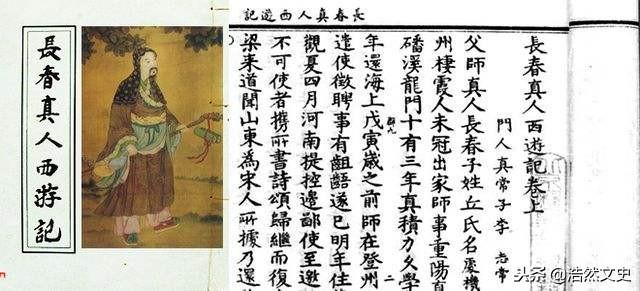 長春真人西游記
長春真人西遊記
長春真人西遊記卷上
門人真常子李 志常
父師真人長春子姓丘氏名處機
州棲霞人未冠出家師事重陽真
磻溪龍門十有三年真積力久學
年還海上戊寅歲之前師在登州
遣使徵聘事有齟齬遂已明年住
觀夏四月河南提控邊鄙使至邀
不可使者攜所書詩頌歸繼而復
梁來道聞山東為宋人所據乃還
二
头条@浩然文史